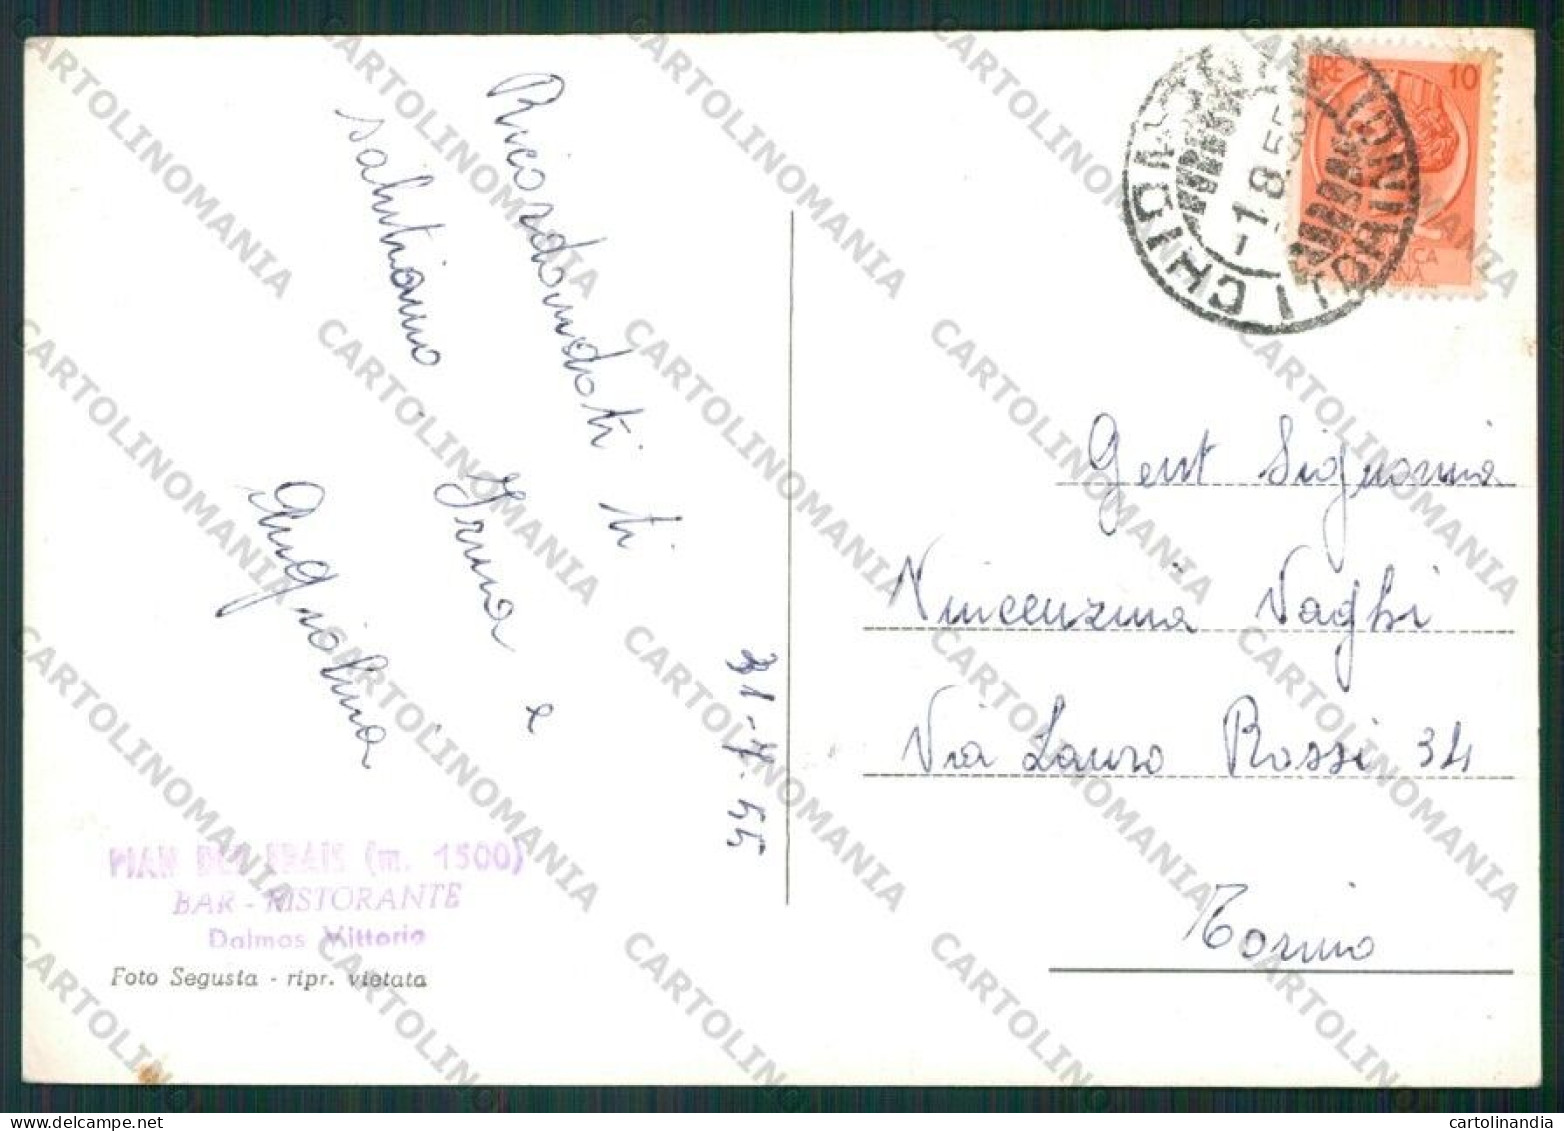 Ricordandoti ti
salutiamo. Irma e
Angiolina
31-7.55
PIAN DEL FRAIS (m. 1500)
BAR - RISTORANTE
Dalmas Vittorio
Foto Segusta - ripr. vietata
LIRE 10
-1.8.55
CHI
Gent Signorina
Vincenzina Vaghi
Via Lauro Rossi 34
Torino
CARTOLINOMANIA
cartolinandia